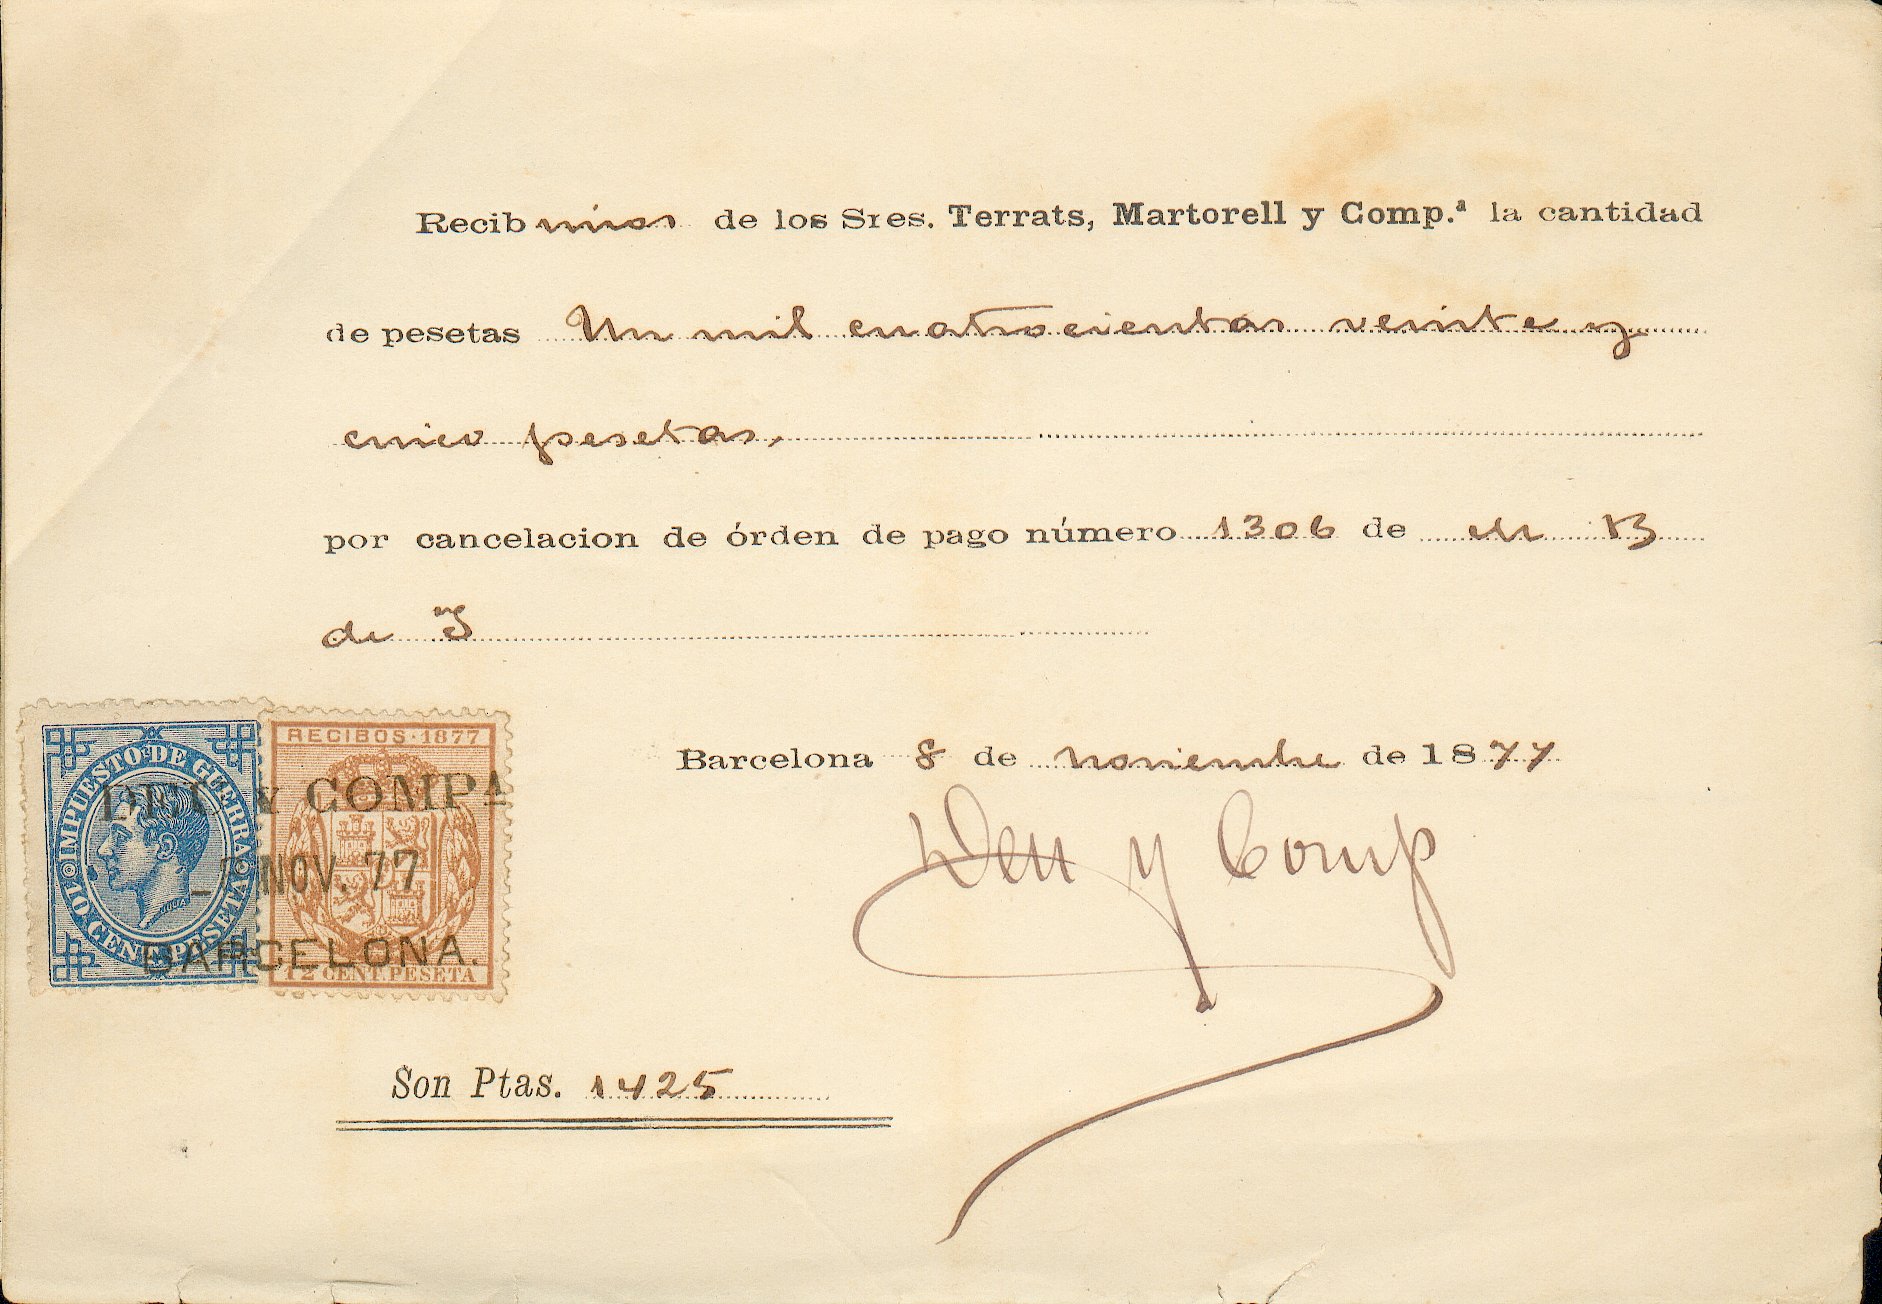 Recibimos de los Sres. Terrats, Martorell y Comp.ª la cantidad
de pesetas Un mil cuatrocientas veinte y
cinco pesetas,
por cancelacion de órden de pago número 1306 de M B
de
Barcelona 8 de noviembre de 1877
Deu y Comp
Son Ptas. 1425
IMPUESTO DE GUERRA
10 CENT. PESETA
RECIBOS · 1877
12 CENT. PESETA
DEU Y COMPA
NOV. 77
BARCELONA.